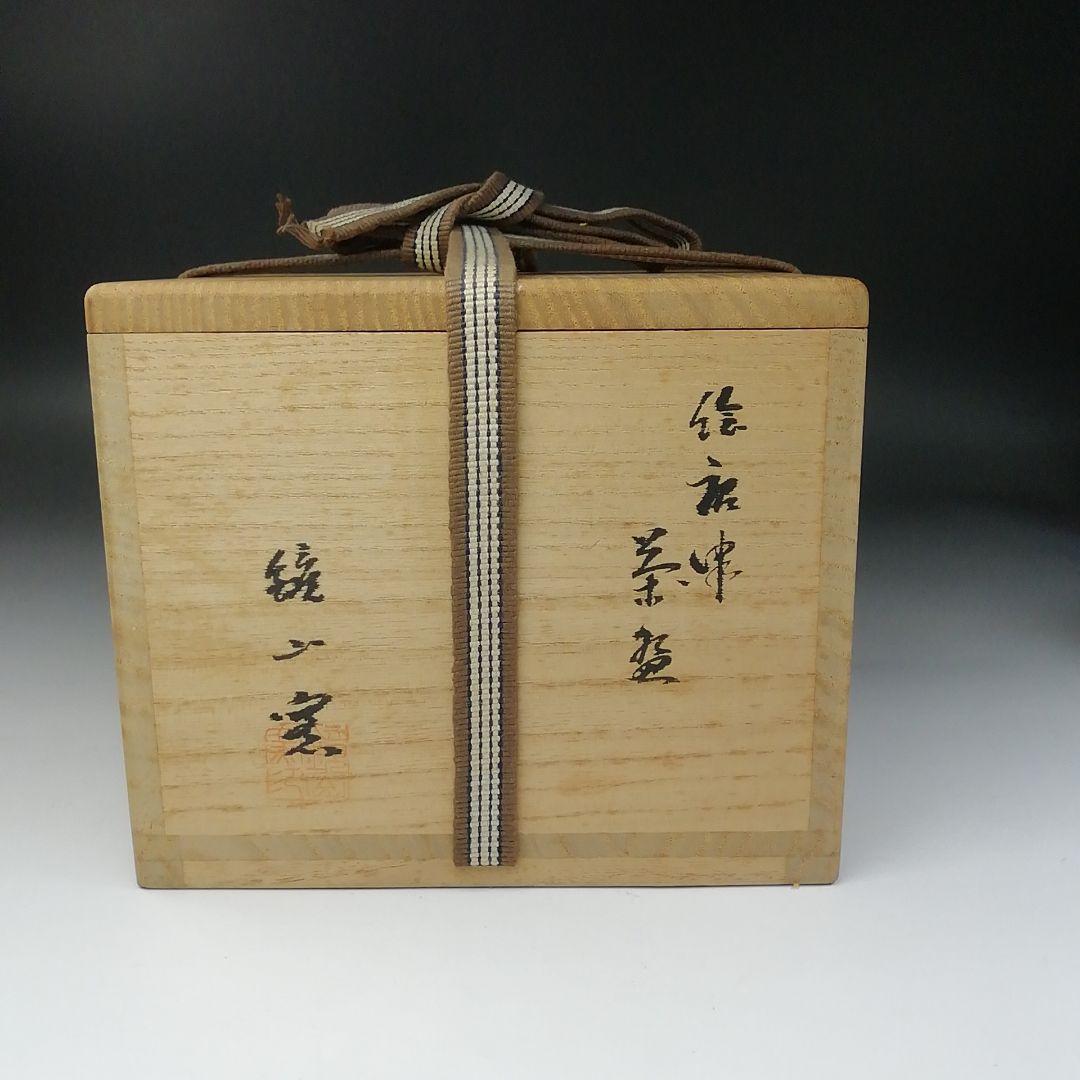 絵唐津
茶盌
鏡山窯